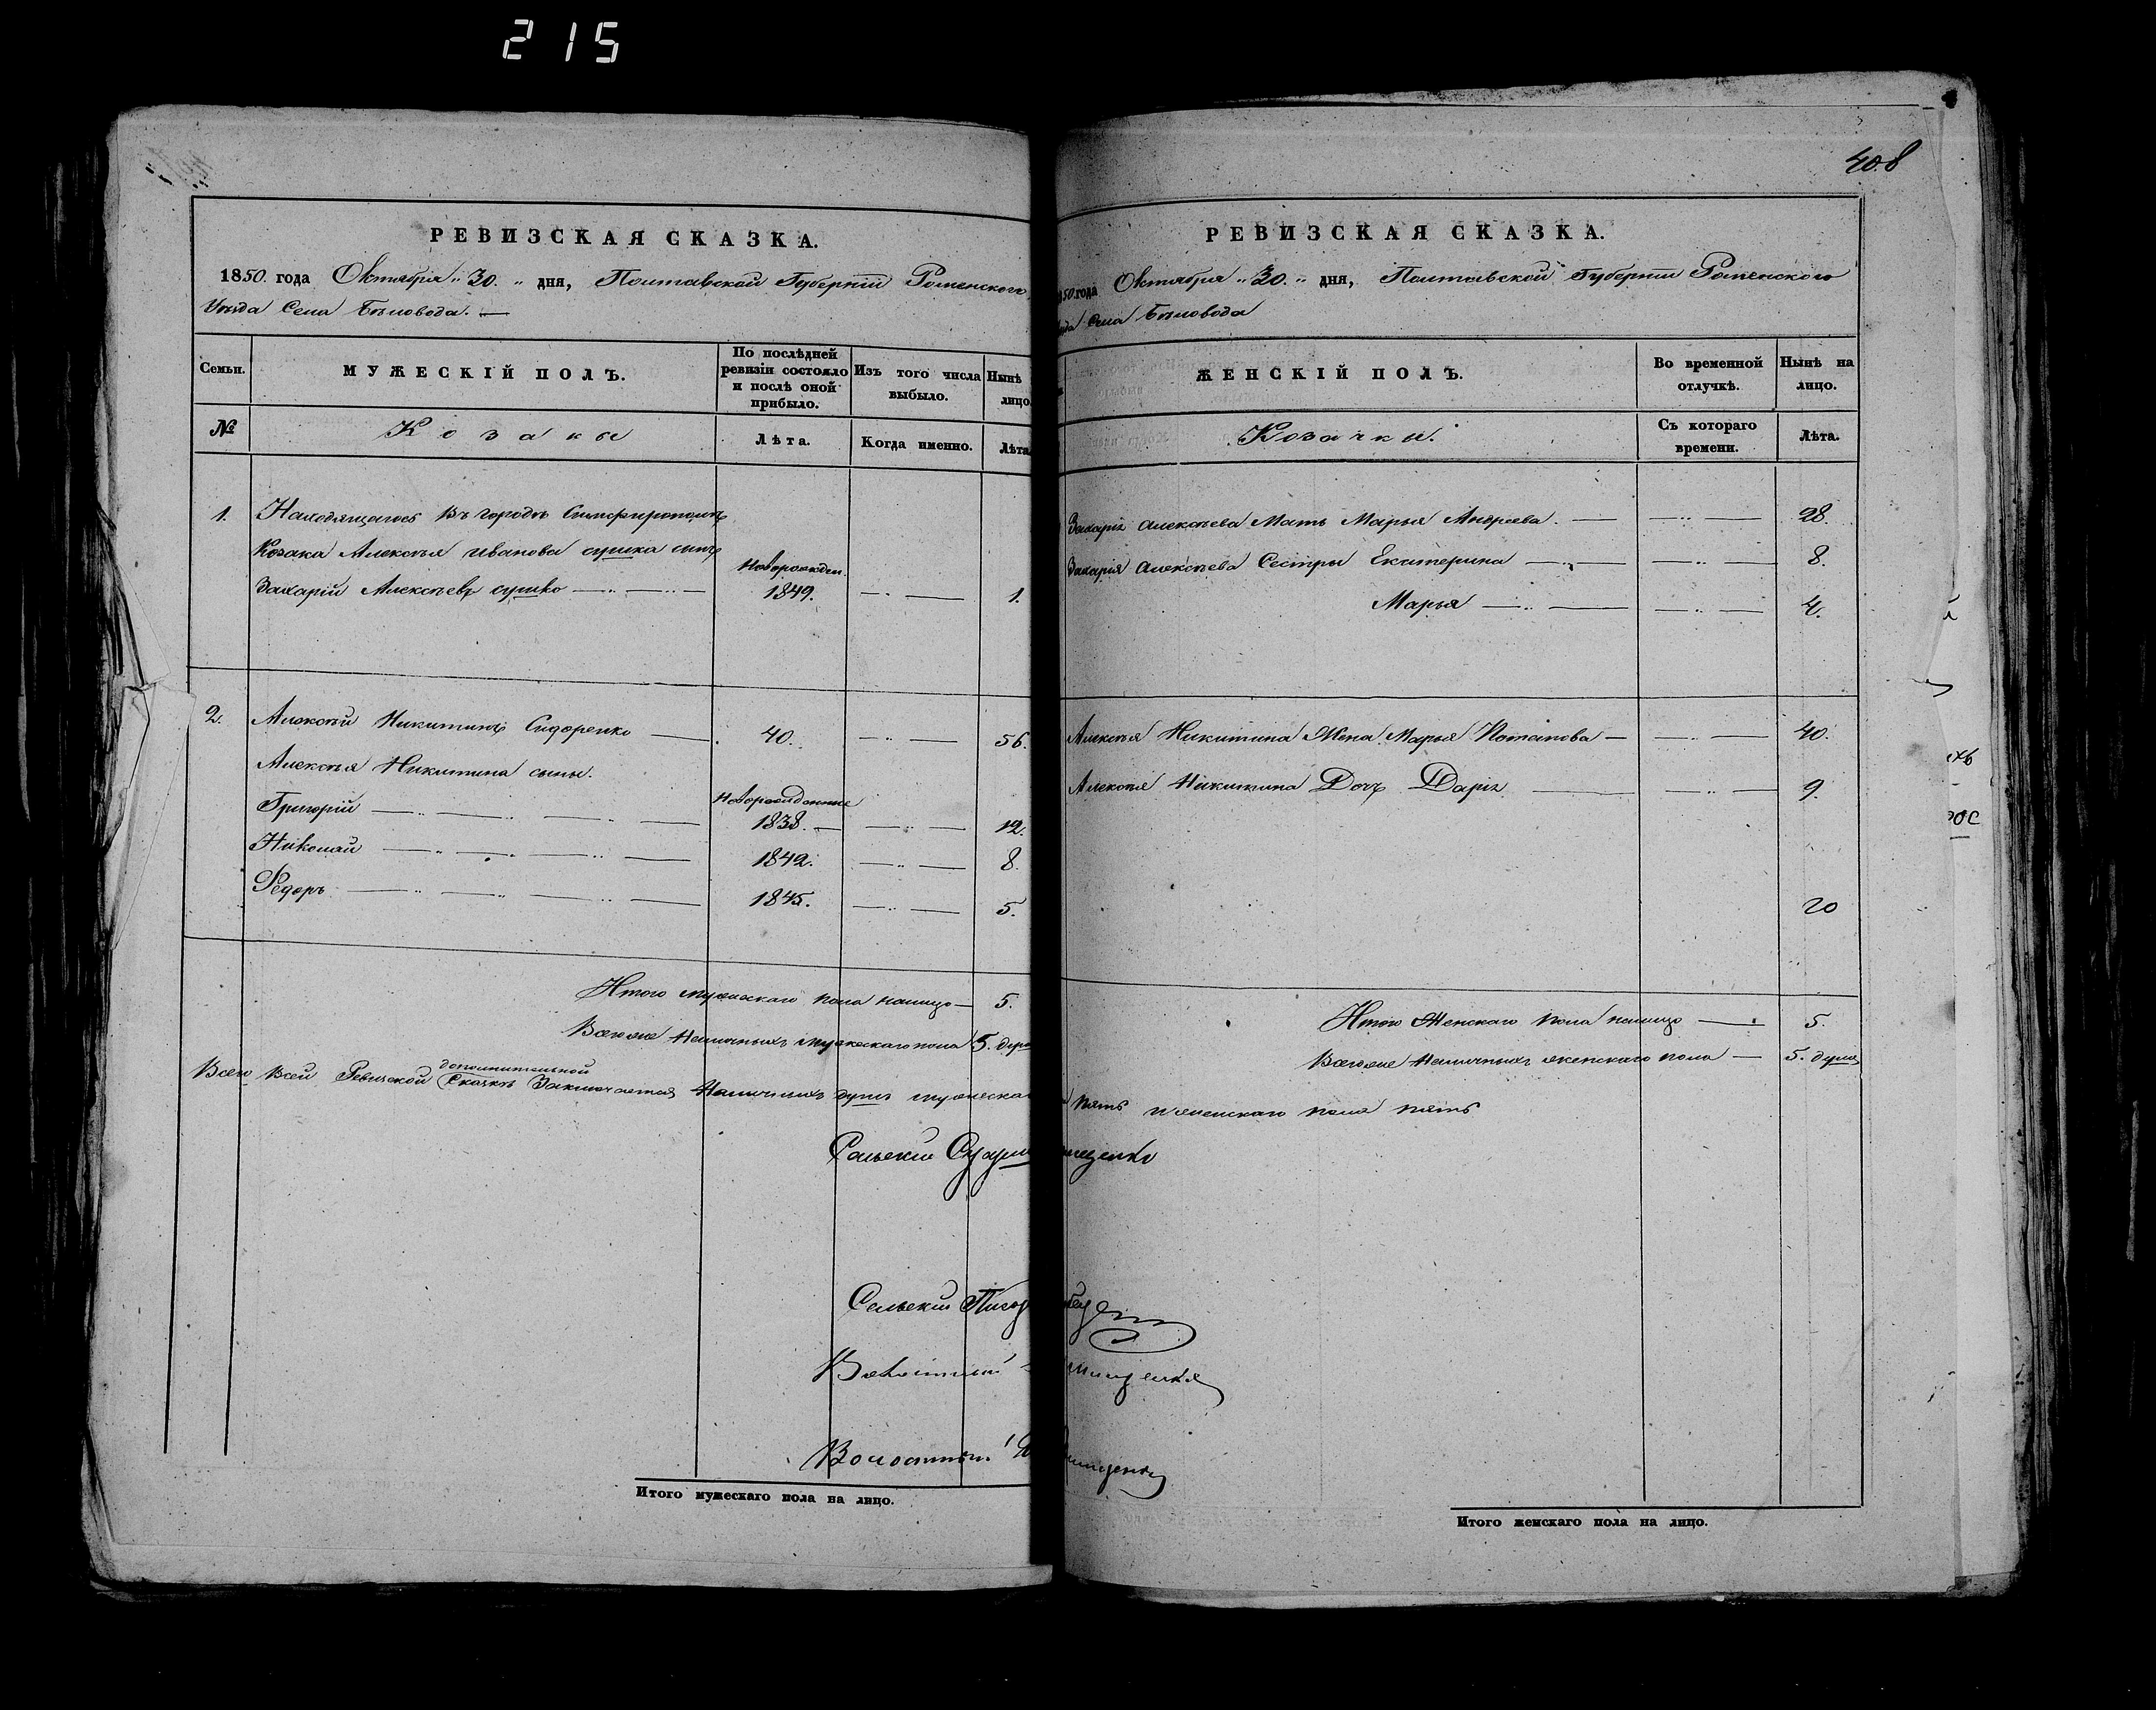 215
РЕВИЗСКАЯ СКАЗКА.
1850. года Октября „ 30. „ дня, Полтавской Губерніи Роменского
Уѣзда Села Бѣловода. —
Семьи.
МУЖЕСКІЙ ПОЛЪ.
По послѣдней ревизіи состояло и послѣ оной прибыло.
Изъ того числа выбыло.
Нынѣ лицо.
№
Козаки
Лѣта.
Когда именно.
Лѣта
1. Находящагося въ городѣ Симферополѣ
Козака Алексѣя Иванова сушка сынъ
Новорожден.
Захарій Алексѣевъ сушко — 1849. — 1.
2. Алексѣй Никитинъ Сидоренко — 40. — 56.
Алексѣя Никитина сыны.
Новорожденные
Григорій — 1838. — 12.
Николай — 1842. — 8.
Федоръ — 1845. — 5.
Итого мужескаго пола налицо — 5.
Всегоже наличныхъ мужескаго пола 5. душ
дополнительной
Всего Всей Ревизской Сказкѣ Заключается Наличныхъ душъ мужеска
Сельскій
Сельскій
Волостный
Итого мужескаго пола на лицо.
408
РЕВИЗСКАЯ СКАЗКА.
50. года Октября „ 30. „ дня, Полтавской Губерніи Роменского
Села Бѣловода
ЖЕНСКІЙ ПОЛЪ.
Во временной отлучкѣ.
Нынѣ на лицо.
Козачки.
Съ котораго времени.
Лѣта.
Захарія Алексѣева Мать Марья Андреева. — 28.
Захарія Алексѣева Сестры Екатерина — 8.
Марья — 4.
Алексѣя Никитина Жена Марья Потапова — 40.
Алексѣя Никитина Дочъ Дарія — 9.
20
Итого Женскаго пола налицо — 5.
Всегоже наличныхъ женскаго пола — 5. душъ
пять женскаго пола пять
Итого женскаго пола на лицо.